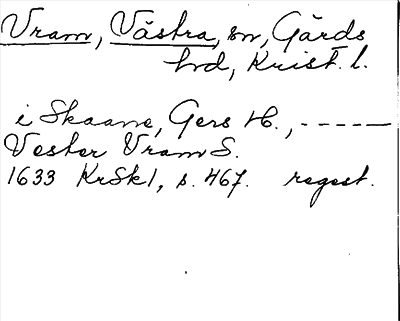 Vram, Västra, sn, Gärds
hd, Krist. l.
i Skaane, Gers H., -----
Vester Vram S.
1633 KrSk1, s. 467. regest.